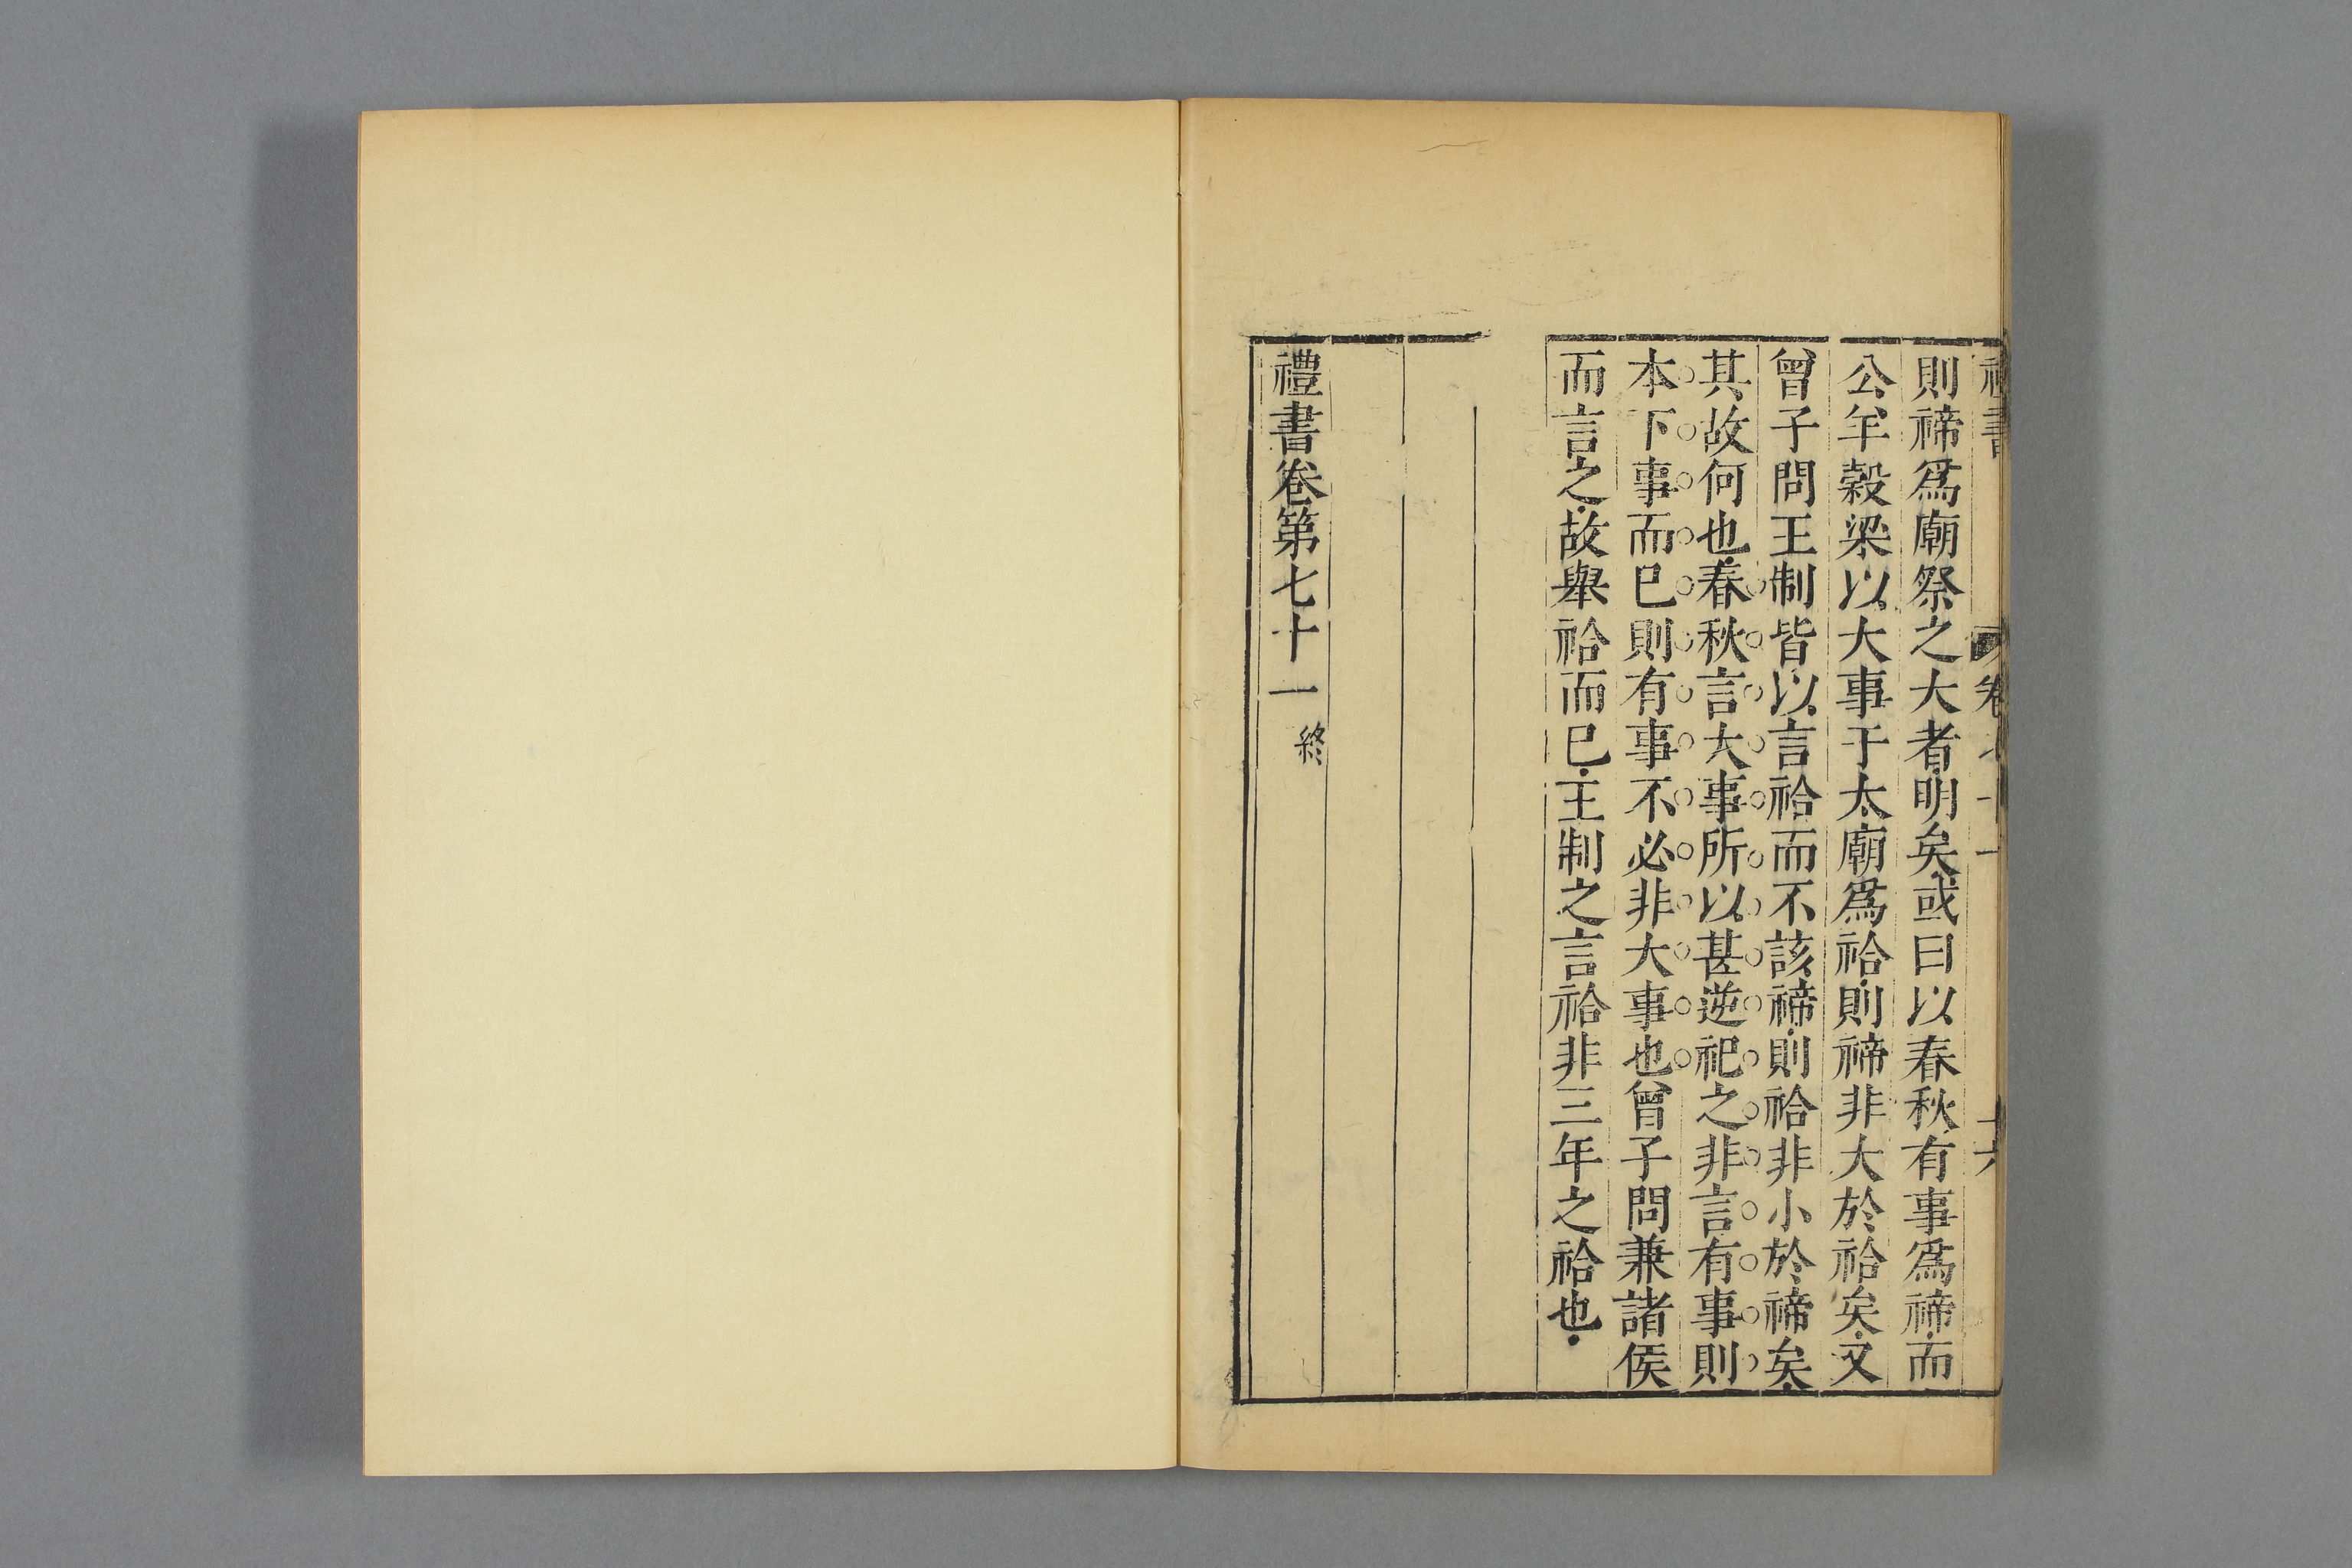 禮書 卷七十一 十六
則禘爲廟祭之大者明矣或曰以春秋有事爲禘而
公羊穀梁以大事于太廟爲祫則禘非大於祫矣文
曾子問王制皆以言祫而不該禘則祫非小於禘矣
其故何也春秋言大事所以甚逆祀之非言有事則
本下事而巳則有事不必非大事也曾子問兼諸侯
而言之故舉祫而巳王制之言祫非三年之祫也
禮書卷第七十一終